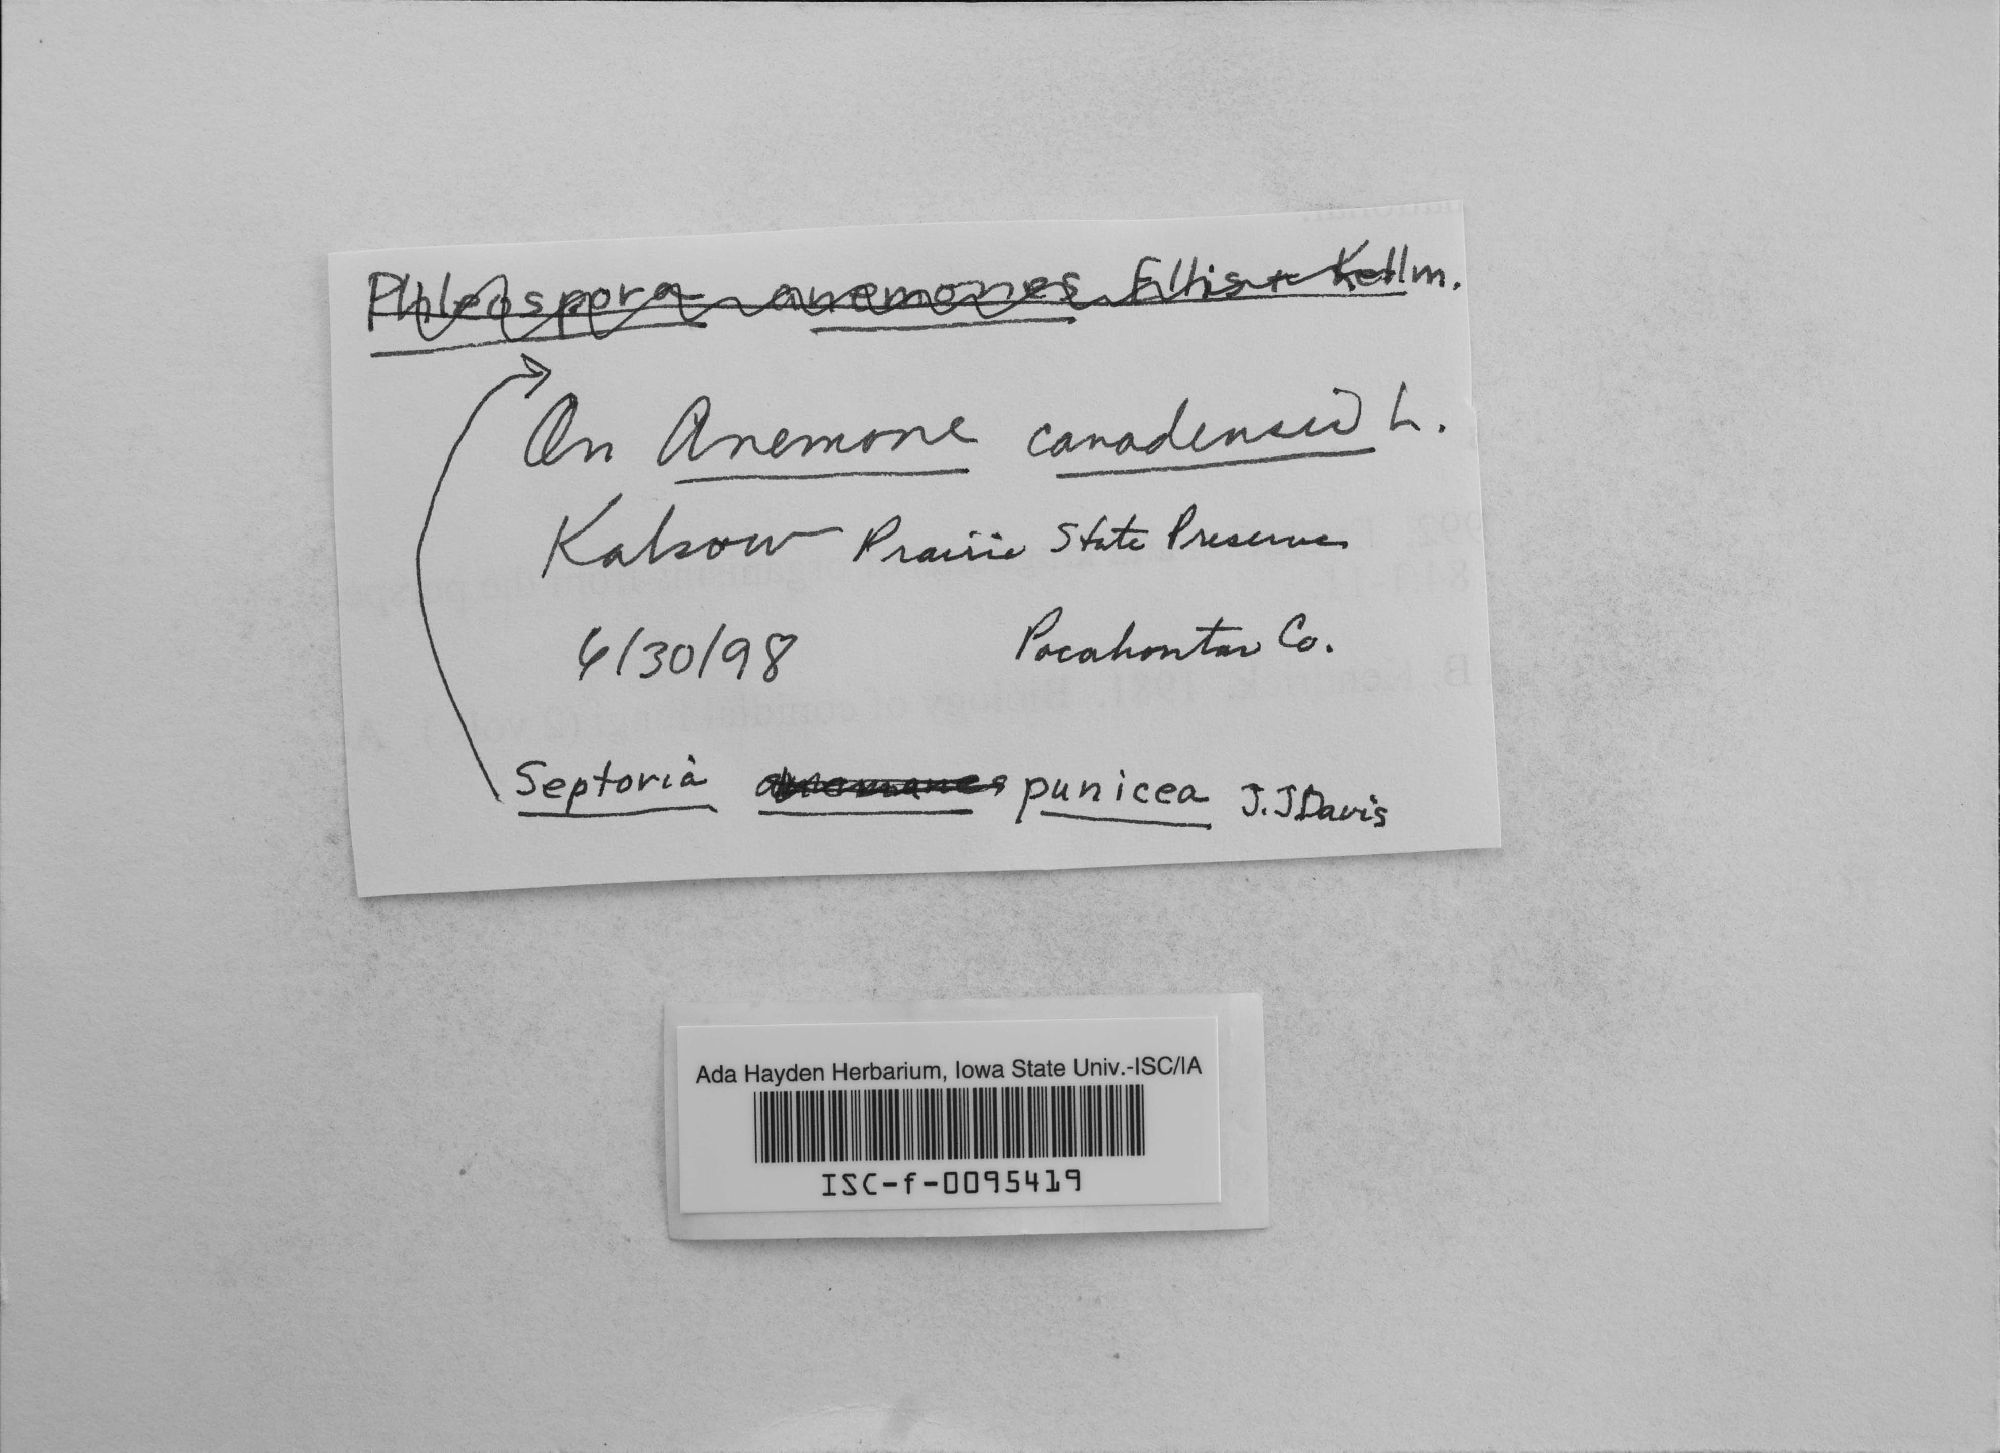 Phleospora anemones Ellis + Kellm.
On Anemone canadensis L.
Kalsow Prairie State Preserve
6/30/98 Pocahontas Co.
Septoria anemones punicea J.J Davis
Ada Hayden Herbarium, Iowa State Univ.-ISC/IA
ISC-f-0095419